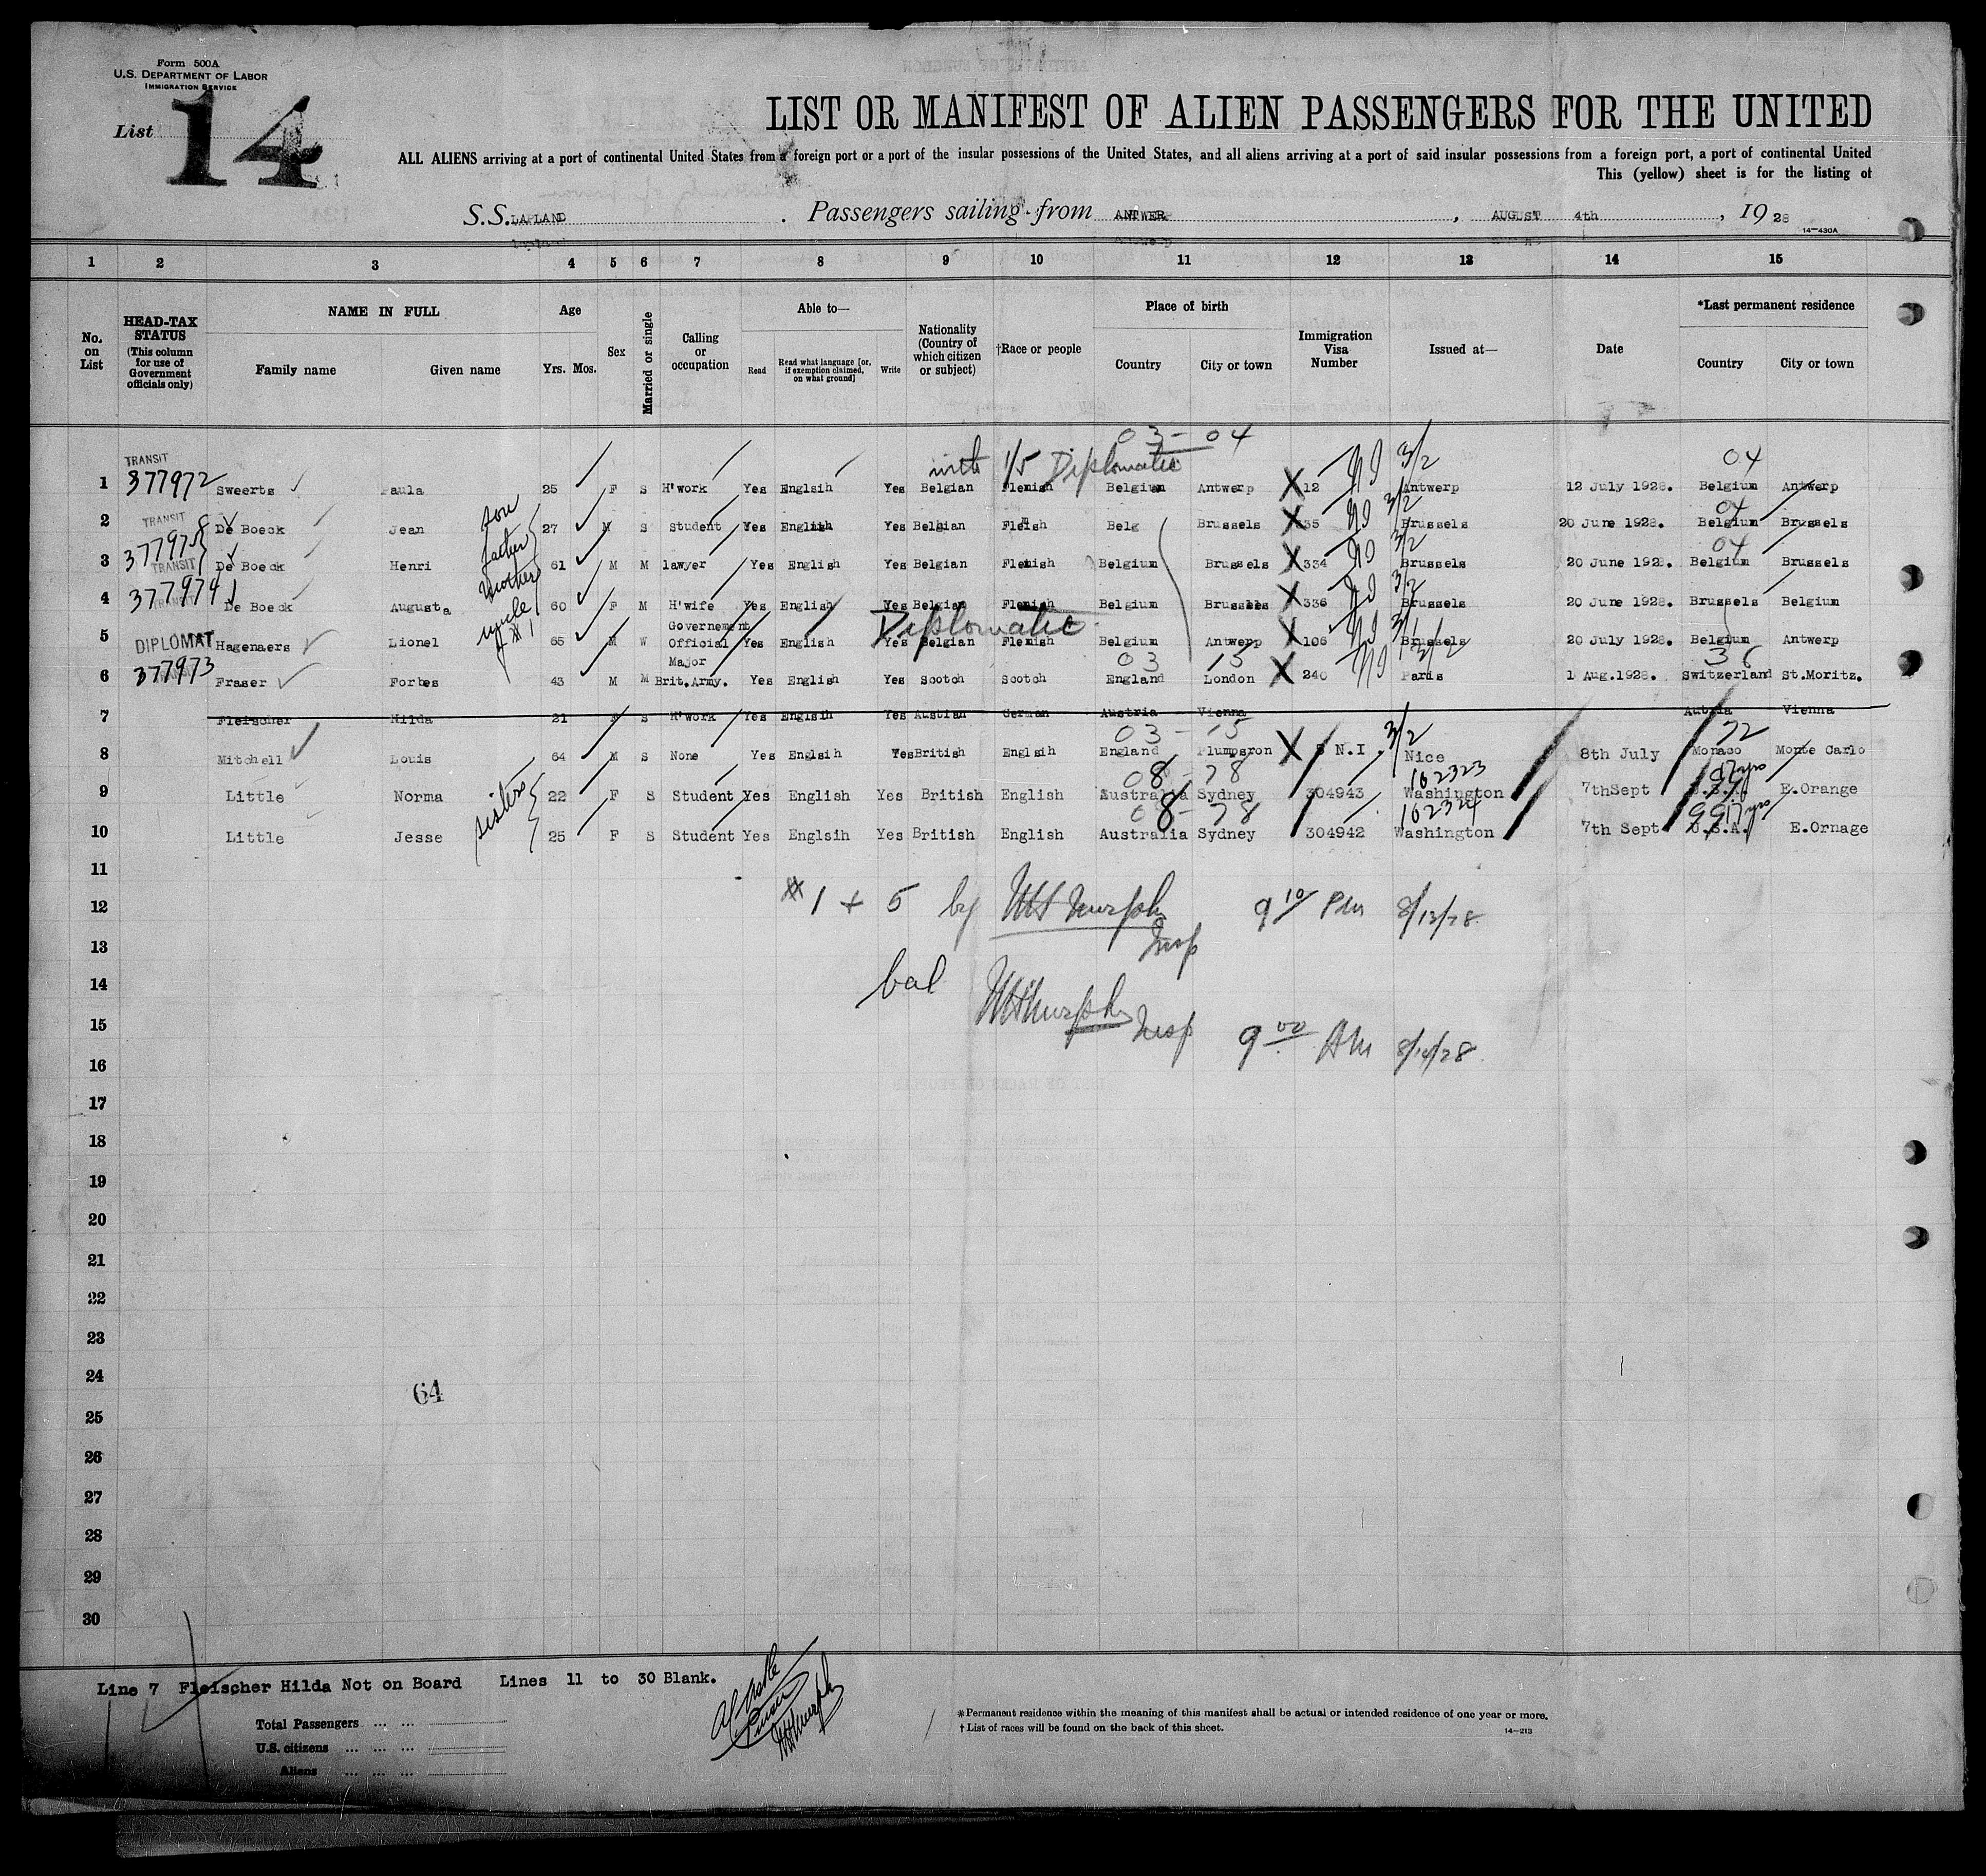 Form 500A
U.S. DEPARTMENT OF LABOR
IMMIGRATION SERVICE
List 14
LIST OR MANIFEST OF ALIEN PASSENGERS FOR THE UNITED
ALL ALIENS arriving at a port of continental United States from a foreign port or a port of the insular possessions of the United States, and all aliens arriving at a port of said insular possessions from a foreign port, a port of continental United
This (yellow) sheet is for the listing of
S.S. LAPLAND . Passengers sailing from ANTWERP , AUGUST 4th , 19 28
14—430A
1 2 3 4 5 6 7 8 9 10 11 12 13 14 15
No. on List
HEAD-TAX STATUS (This column for use of Government officials only)
NAME IN FULL
Family name Given name
Age
Yrs. Mos.
Sex
Married or single
Calling or occupation
Able to—
Read Read what language [or, if exemption claimed, on what ground] Write
Nationality (Country of which citizen or subject)
†Race or people
Place of birth
Country City or town
Immigration Visa Number
Issued at—
Date
*Last permanent residence
Country City or town
03 - 04
with 1/5 Diplomatic
04
1 TRANSIT 377972 Sweerts Paula 25 F S H'work Yes Englsih Yes Belgian Flemish Belgium Antwerp X 12 NI 3/2 Antwerp 12 July 1928. Belgium Antwerp
2 TRANSIT De Boeck Jean son 27 M S Student Yes English Yes Belgian Flemish Belg Brussels X 335 NI 3/2 Brussels 20 June 1928. 04 Belgium Brussels
3 TRANSIT De Boeck Henri father 61 M M lawyer Yes English Yes Belgian Flemish Belgium Brussels X 334 NI 3/2 Brussels 20 June 1928. 04 Belgium Brussels
4 377974 De Boeck Augusta mother 60 F M H'wife Yes English Yes Belgian Flemish Belgium Brussels X 336 NI 3/2 Brussels 20 June 1928. Brussels Belgium
5 DIPLOMAT Hagenaers Lionel uncle of #1 65 M W Governement Official Yes English Yes Belgian Flemish Belgium Antwerp X 106 NI Brussels 20 July 1928. Belgium Antwerp
Diplomatic
03 15
6 377973 Fraser Forbes 43 M M Major Brit.Army. Yes English Yes Scotch Scotch England London X 240 NI 3/2 Paris 1 Aug.1928. Switzerland St.Moritz.
7 Fleischer Hilda 21 F S H'work Yes Englsih Yes Austian German Austria Vienna Vienna
03 - 15
8 Mitchell Louis 64 M S None Yes Englsih Yes British Englsih England Plumpsron X S N.I. 3/2 Nice 8th July 72 Monaco Monte Carlo
08 - 78
162323
9 Little Norma sisters 22 F S Student Yes English Yes British English Australia Sydney 304943 Washington 7thSept U.S.A. E.Orange
08 - 78
162324
10 Little Jesse 25 F S Student Yes Englsih Yes British English Australia Sydney 304942 Washington 7th Sept U.S.A. E.Ornage
11
12 #1 + 5 by WH Murphy 9 10 Pm 8/13/28
13 Insp
14 bal
15 WH Murphy Insp 9 00 Am 8/14/28
16
17
18
19
20
21
22
23
24 64
25
26
27
28
29
30
Line 7 Fleischer Hilda Not on Board Lines 11 to 30 Blank.
Total Passengers ... ...
U.S. citizens ... ... ...
Aliens ... ... ...
WH Murphy
*Permanent residence within the meaning of this manifest shall be actual or intended residence of one year or more.
† List of races will be found on the back of this sheet.
14—213